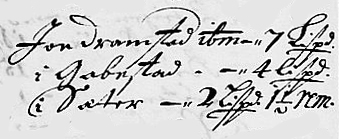 Jon dramstad ibm - 7 Lispd.
i Gabestad - - 4 lispd.
i Sæter - 2 Lispd. 1½ rem.